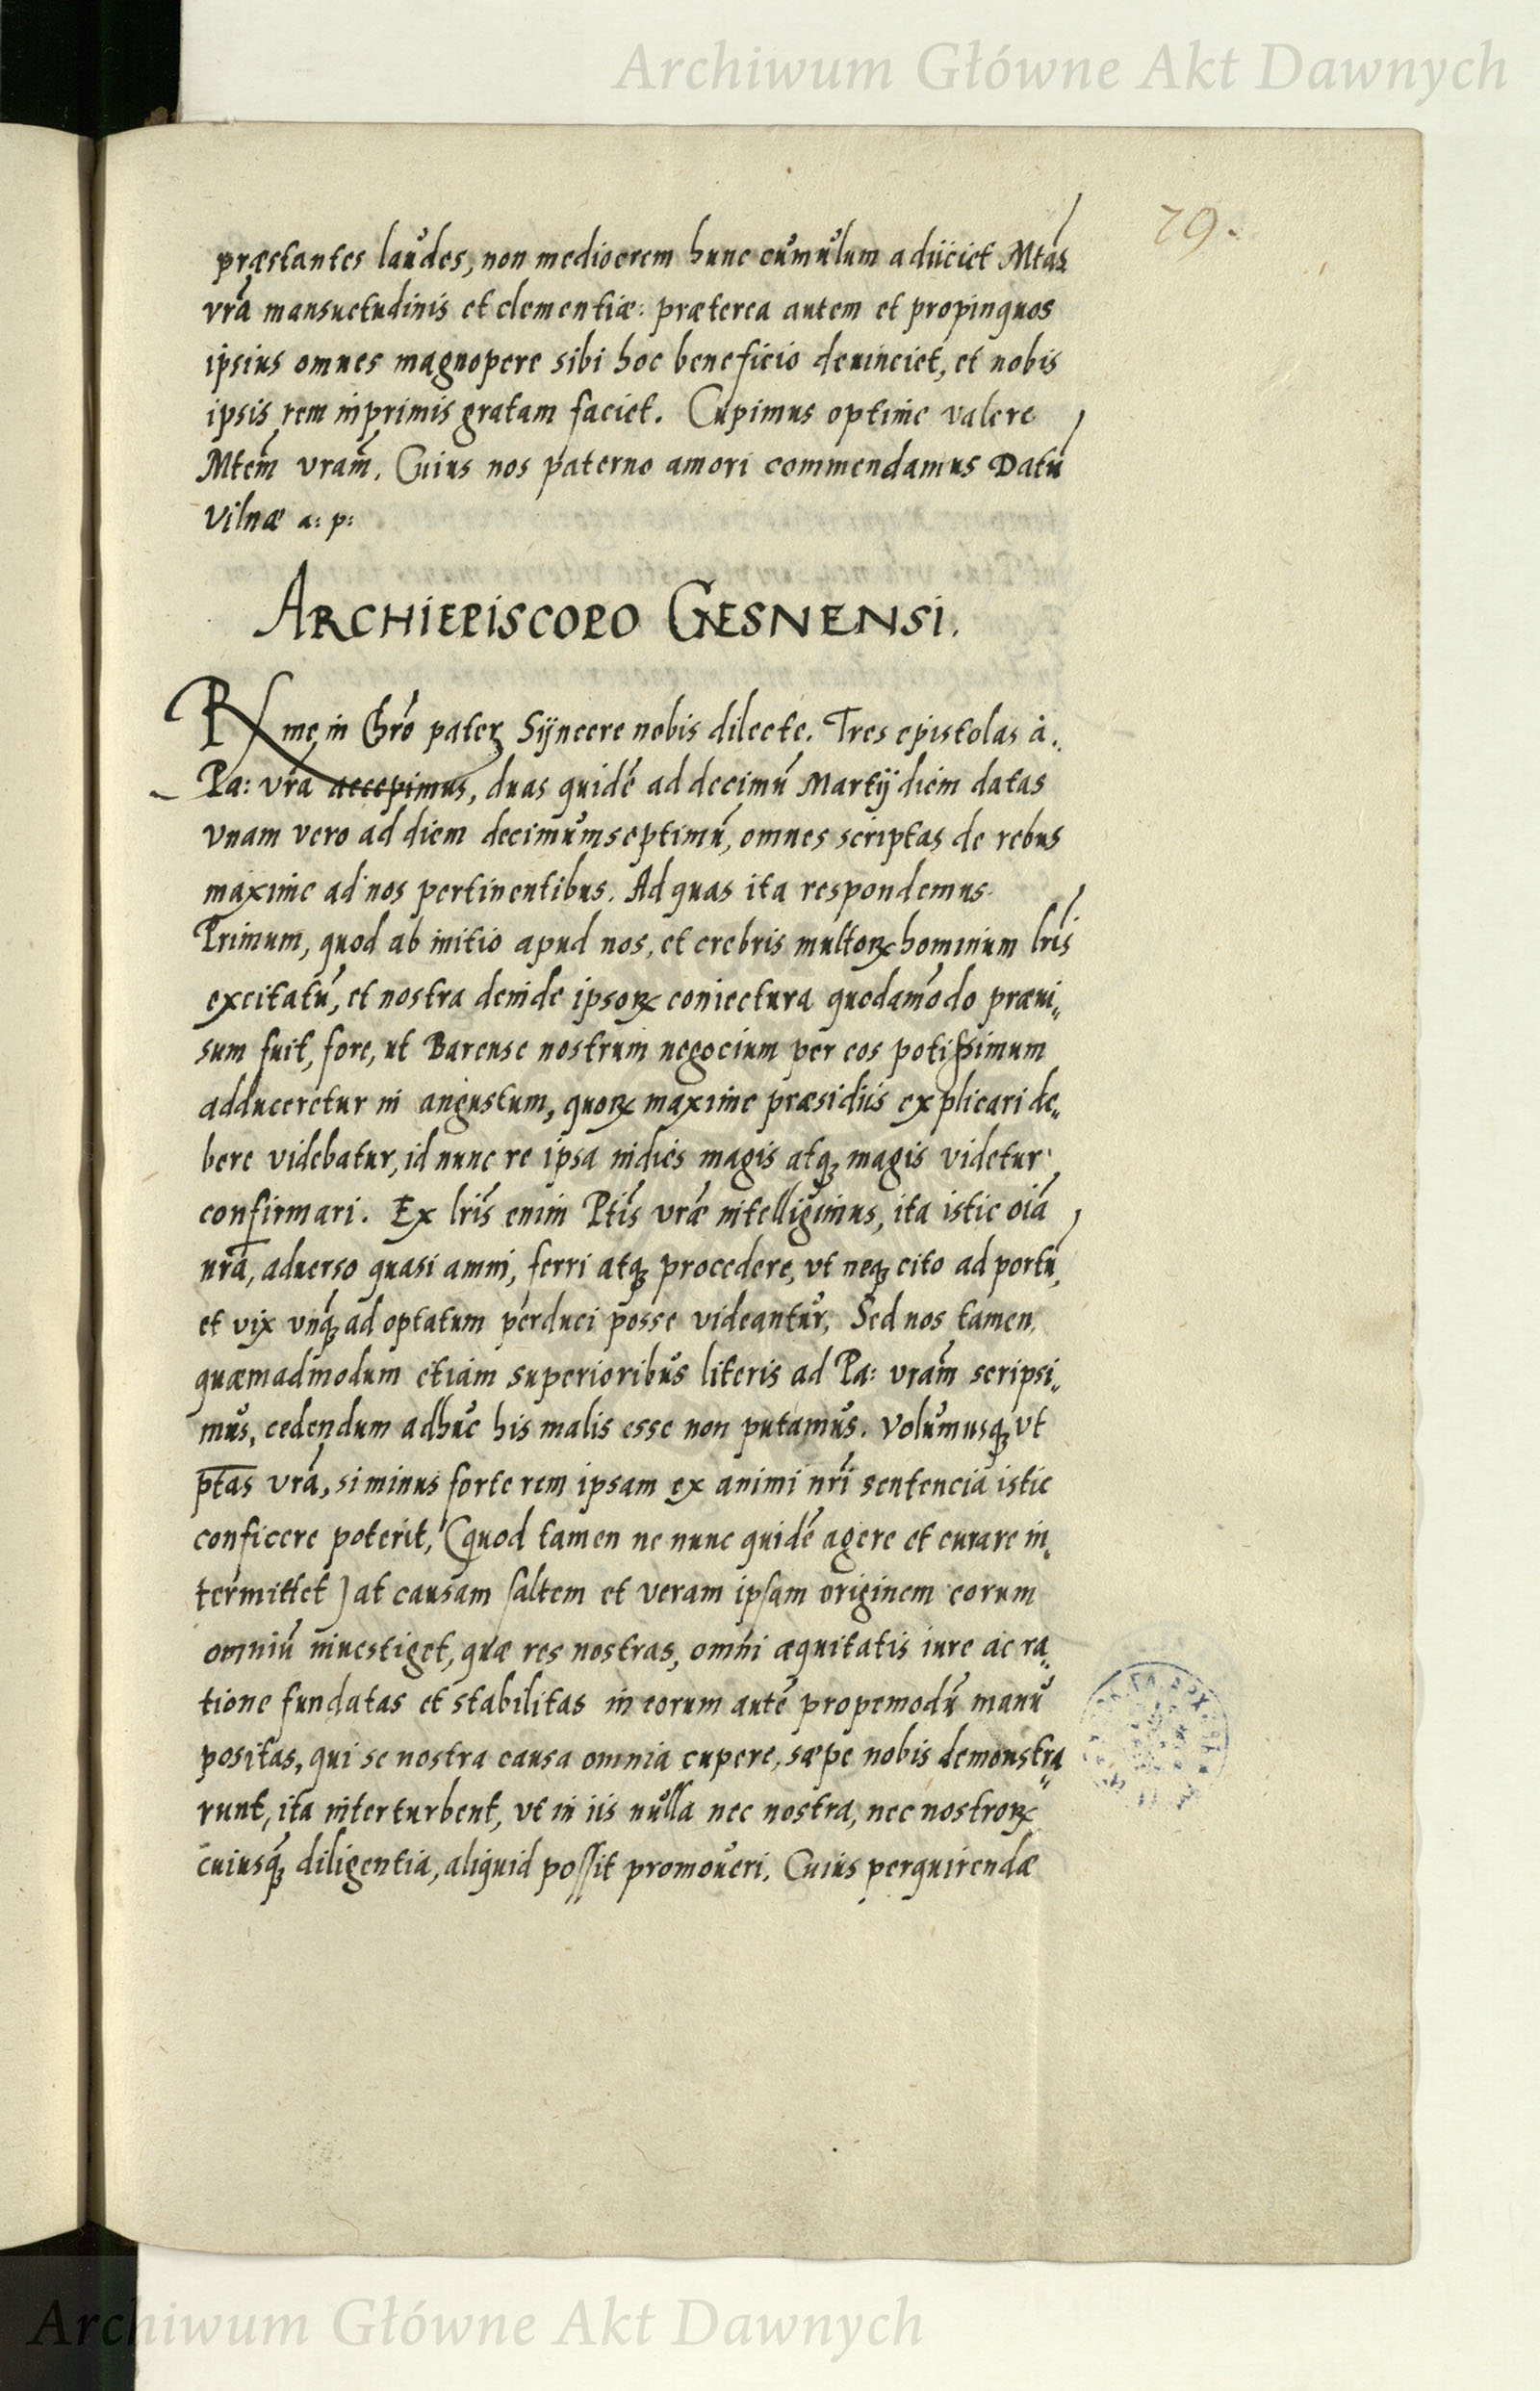 Archiwum Główne Akt Dawnych
79.
præstantes laudes, non mediocrem hunc cumulum adiiciet Mtas
vrā mansuetudinis et clementiæ: præterea autem et propinquos
ipsius omnes magnopere sibi hoc beneficio deuinciet, et nobis
ipsis rem inprimis gratam faciet. Cupimus optime valere
Mtem̄ vram̄. Cuius nos paterno amori commendamus Datū
Vilnæ a: p:
ARCHIEPISCOPO GESNENSI.
Rme in Chrō pater Sÿncere nobis dilecte. Tres epistolas à
Pa: vrā accepimus, duas quidē ad decimū Martÿ diem datas
vnam vero ad diem decimumseptimū, omnes scriptas de rebus
maxime ad nos pertinentibus. Ad quas ita respondemus.
Primum, quod ab initio apud nos, et crebris multoꝝ hominum lris̄
excitatū, et nostra deinde ipsoꝝ coniectura quodam̄odo præui„
sum fuit, fore, ut Barense nostrum negocium per eos potißimum
adduceretur in angustum, quoꝝ maxime præsidiis explicari de„
bere videbatur, id nunc re ipsa indies magis atqꝫ magis videtur
confirmari. Ex lris̄ enim Ptis̄ vrǣ intelligimus, ita istic oiā
nrā, aduerso quasi amni, ferri atqꝫ procedere, vt neqꝫ cito ad portū,
et vix vnq̄ꝫ ad optatum perduci posse videantur. Sed nos tamen,
quæmadmodum etiam superioribus literis ad Pa: vram̄ scripsi„
mus, cedendum adhuc his malis esse non putamus. Volumusqꝫ vt
ptas̄ vrā, si minus forte rem ipsam ex animi nrī sentencia istic
conficere poterit, (quod tamen ne nunc quidē agere et curare in„
termittet) at causam saltem et veram ipsam originem eorum
omniū inuestiget, quæ res nostras, omni æquitatis iure ac ra„
tione fundatas et stabilitas in eorum autē propemodū manu
positas, qui se nostra causa omnia cupere, sæpe nobis demonstra„
runt, ita interturbent, vt in iis nulla nec nostra, nec nostroꝝ
cuiusq̄ꝫ diligentia, aliquid possit promoueri. Cuius perquirendæ
Archiwum Główne Akt Dawnych